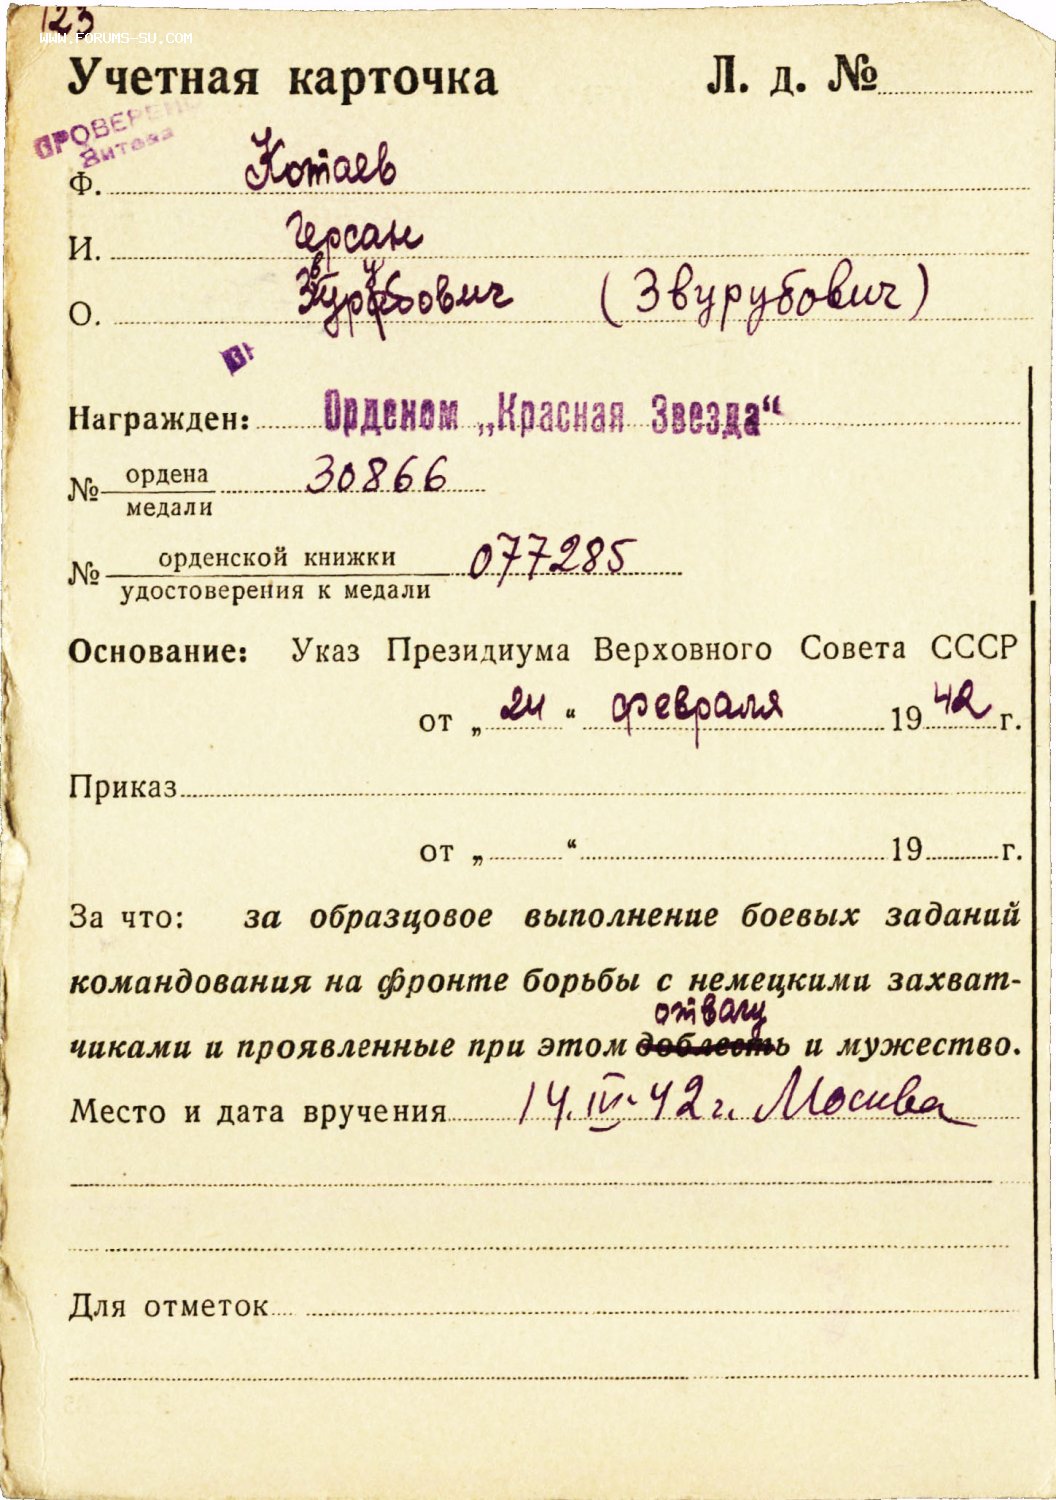 123
WWW.FORUMS-SU.COM
Учетная карточка Л. д. №
ПРОВЕРЕНО
Ф. Котаев
И. Герсан
О. Звурубович (Звурубович)
Награжден: Орденом „Красная Звезда“
№ ордена 30866
медали
№ орденской книжки 077285
удостоверения к медали
Основание: Указ Президиума Верховного Совета СССР
от „24“ февраля 1942 г.
Приказ
от „ “ 19 г.
За что: за образцовое выполнение боевых заданий
командования на фронте борьбы с немецкими захват-
отвагу
чиками и проявленные при этом доблесть и мужество.
Место и дата вручения 14. IV. 42 г. Москва
Для отметок